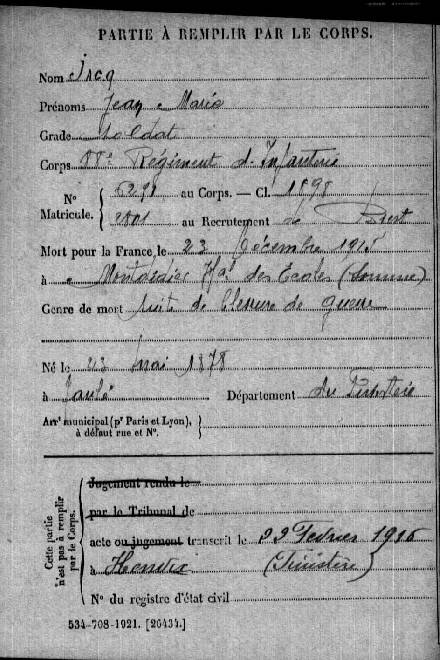 PARTIE À REMPLIR PAR LE CORPS.
Nom Jacq
Prénoms Jean Marie
Grade Soldat
Corps Régiment d'Infanterie
N° Matricule. au Corps. — Cl. 1898
au Recrutement de Brest
Mort pour la France le 23 Décembre
à Montdidier Hal des Ecoles (Somme)
Genre de mort Suite de blessure de guerre
Né le 23 mai 1878
à Taulé Département du Finistère
Arrt municipal (pr Paris et Lyon),
à défaut rue et N°.
Cette partie n'est pas à remplir par le Corps.
Jugement rendu le
par le Tribunal de
acte ou jugement transcrit le 22 Février 1916
à (Finistère)
N° du registre d'état civil
534-708-1921. [26434.]